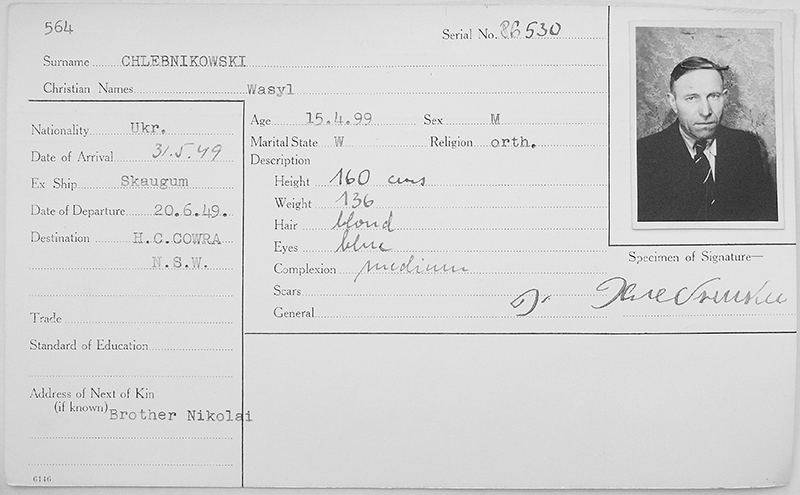 564
Serial No. 86530
Surname CHLEBNIKOWSKI
Christian Names Wasyl
Nationality Ukr.
Date of Arrival 31.5.49
Ex Ship Skaugum
Date of Departure 20.6.49.
Destination H.C.COWRA
N.S.W.
Trade
Standard of Education
Address of Next of Kin
(if known) Brother Nikolai
6146
Age 15.4.99 Sex M
Marital State W Religion orth.
Description
Height 160 cms
Weight 136
Hair blond
Eyes blue
Complexion medium
Scars
General
Specimen of Signature—